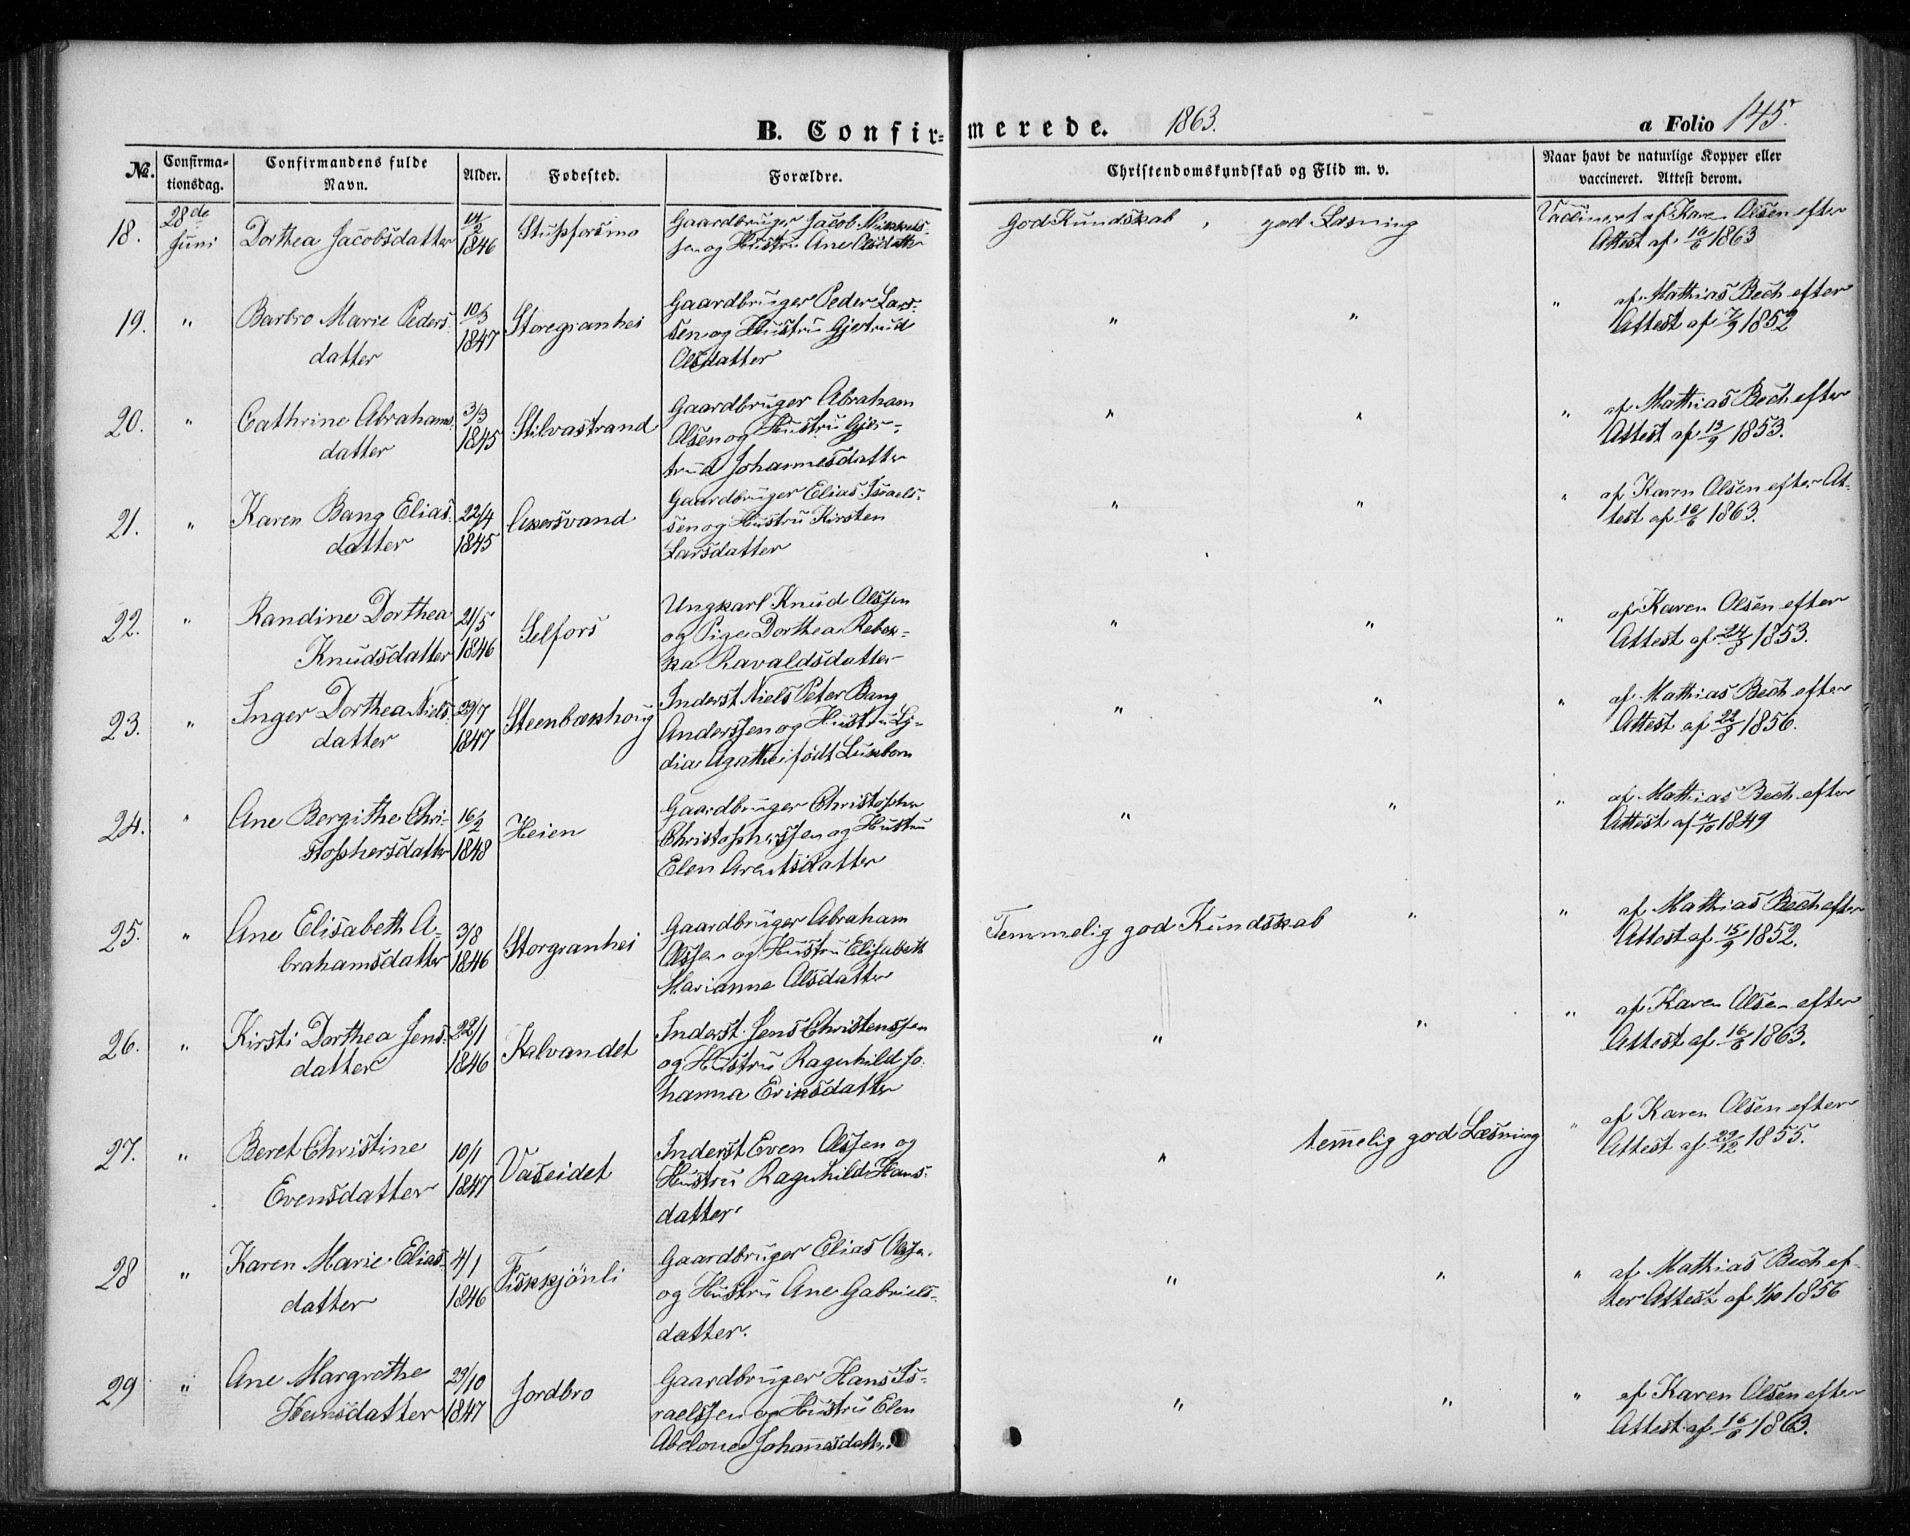 B. Confirmerede. 1863. a Folio 145.
No. Confirmationsdag. Confirmandens fulde Navn. Alder. Fødested. Forældre. Christendomskundskab og Flid m. v. Naar havt de naturlige Kopper eller vaccineret. Attest derom.
18. 28de Juni Dorthea Jacobsdatter 1846
Gaardbruger Jacob
sen og Hustru Ane Olsdatter
God Kundskab, god Læsning
Vaccineret af Karen Olsen efter
Attest af 16/6 1863
19. " Barbro Marie Peders-
datter
10/3 1847 Storegranhei
Gaardbruger Peder Lars-
sen og Hustru Gjertrud
Olsdatter
" "
" af Mathias Bech efter
Attest af 7/9 1852
20. " Cathrine Abrahams-
datter
3/3 1845 Stilvastrand
Gaardbruger Abraham
Olsen og Hustru Gjer-
trud Johannesdatter
" "
" af Mathias Bech efter
Attest af 13/9 1853.
21. " Karen Bang Elias-
datter
22/4 1845 Akersvand
Gaardbruger Elias Israels-
sen og Hustru Kirsten
Larsdatter
" "
" af Karen Olsen efter At-
test af 16/6 1863.
22. " Randine Dorthea
Knudsdatter
21/5 1846 Selfors
Ungkarl Knud Olssen
og Pige Dorthea Rebek-
ka Ravaldsdatter
" "
" af Karen Olsen efter
Attest af 24/8 1853.
23. " Inger Dorthea Niels-
datter
29/7 1847 Steenbækhoug
Inderst Niels Peter Bang
Anderssen og Hustru Ly-
dia Agathe født
" "
" af Mathias Bech efter
Attest af 22/8 1856.
24. " Ane Bergithe Chri-
stophersdatter
16/2 1848 Heien
Gaardbruger Christopher
Christopherssen og Hustru
Elen Arentsdatter
" "
" af Mathias Bech efter
Attest af 1849
25. " Ane Elisabeth A-
brahamsdatter
3/8 1846 Storgranhei
Gaardbruger Abraham
Olssen og Hustru Elisabeth
Marianne Olsdatter
Temmelig god Kundskab "
" af Mathias Bech efter
Attest af 15/9 1852.
26. " Kirsti Dorthea Jens-
datter
22/1 1846 Kalvandet
Inderst Jens Christenssen
og Hustru Ragnhild Jo-
hanna Eriksdatter
" "
" af Karen Olsen efter
Attest af 16/6 1863.
27. " Beret Christine
Evensdatter
10/1 1847 Vaseidet
Inderst Even Olssen og
Hustru Ragnhild Hans-
datter
" temmelig god Læsning
" af Karen Olsen efter
Attest af 29/12 1855.
28 " Karen Marie Elias-
datter
4/1 1846 Fiskkjönli
Gaardbruger Elias Olssen
og Hustru Ane Gabriels-
datter.
" "
" af Mathias Bech ef-
ter Attest af 1/10 1856
29 " Ane Margrethe
Hansdatter
29/10 1847 Jordbro
Gaardbruger Hans Is-
raelssen og Hustru Elen
Abelone Johannsdatter
" "
" af Karen Olsen efter
Attest af 16/6 1863.